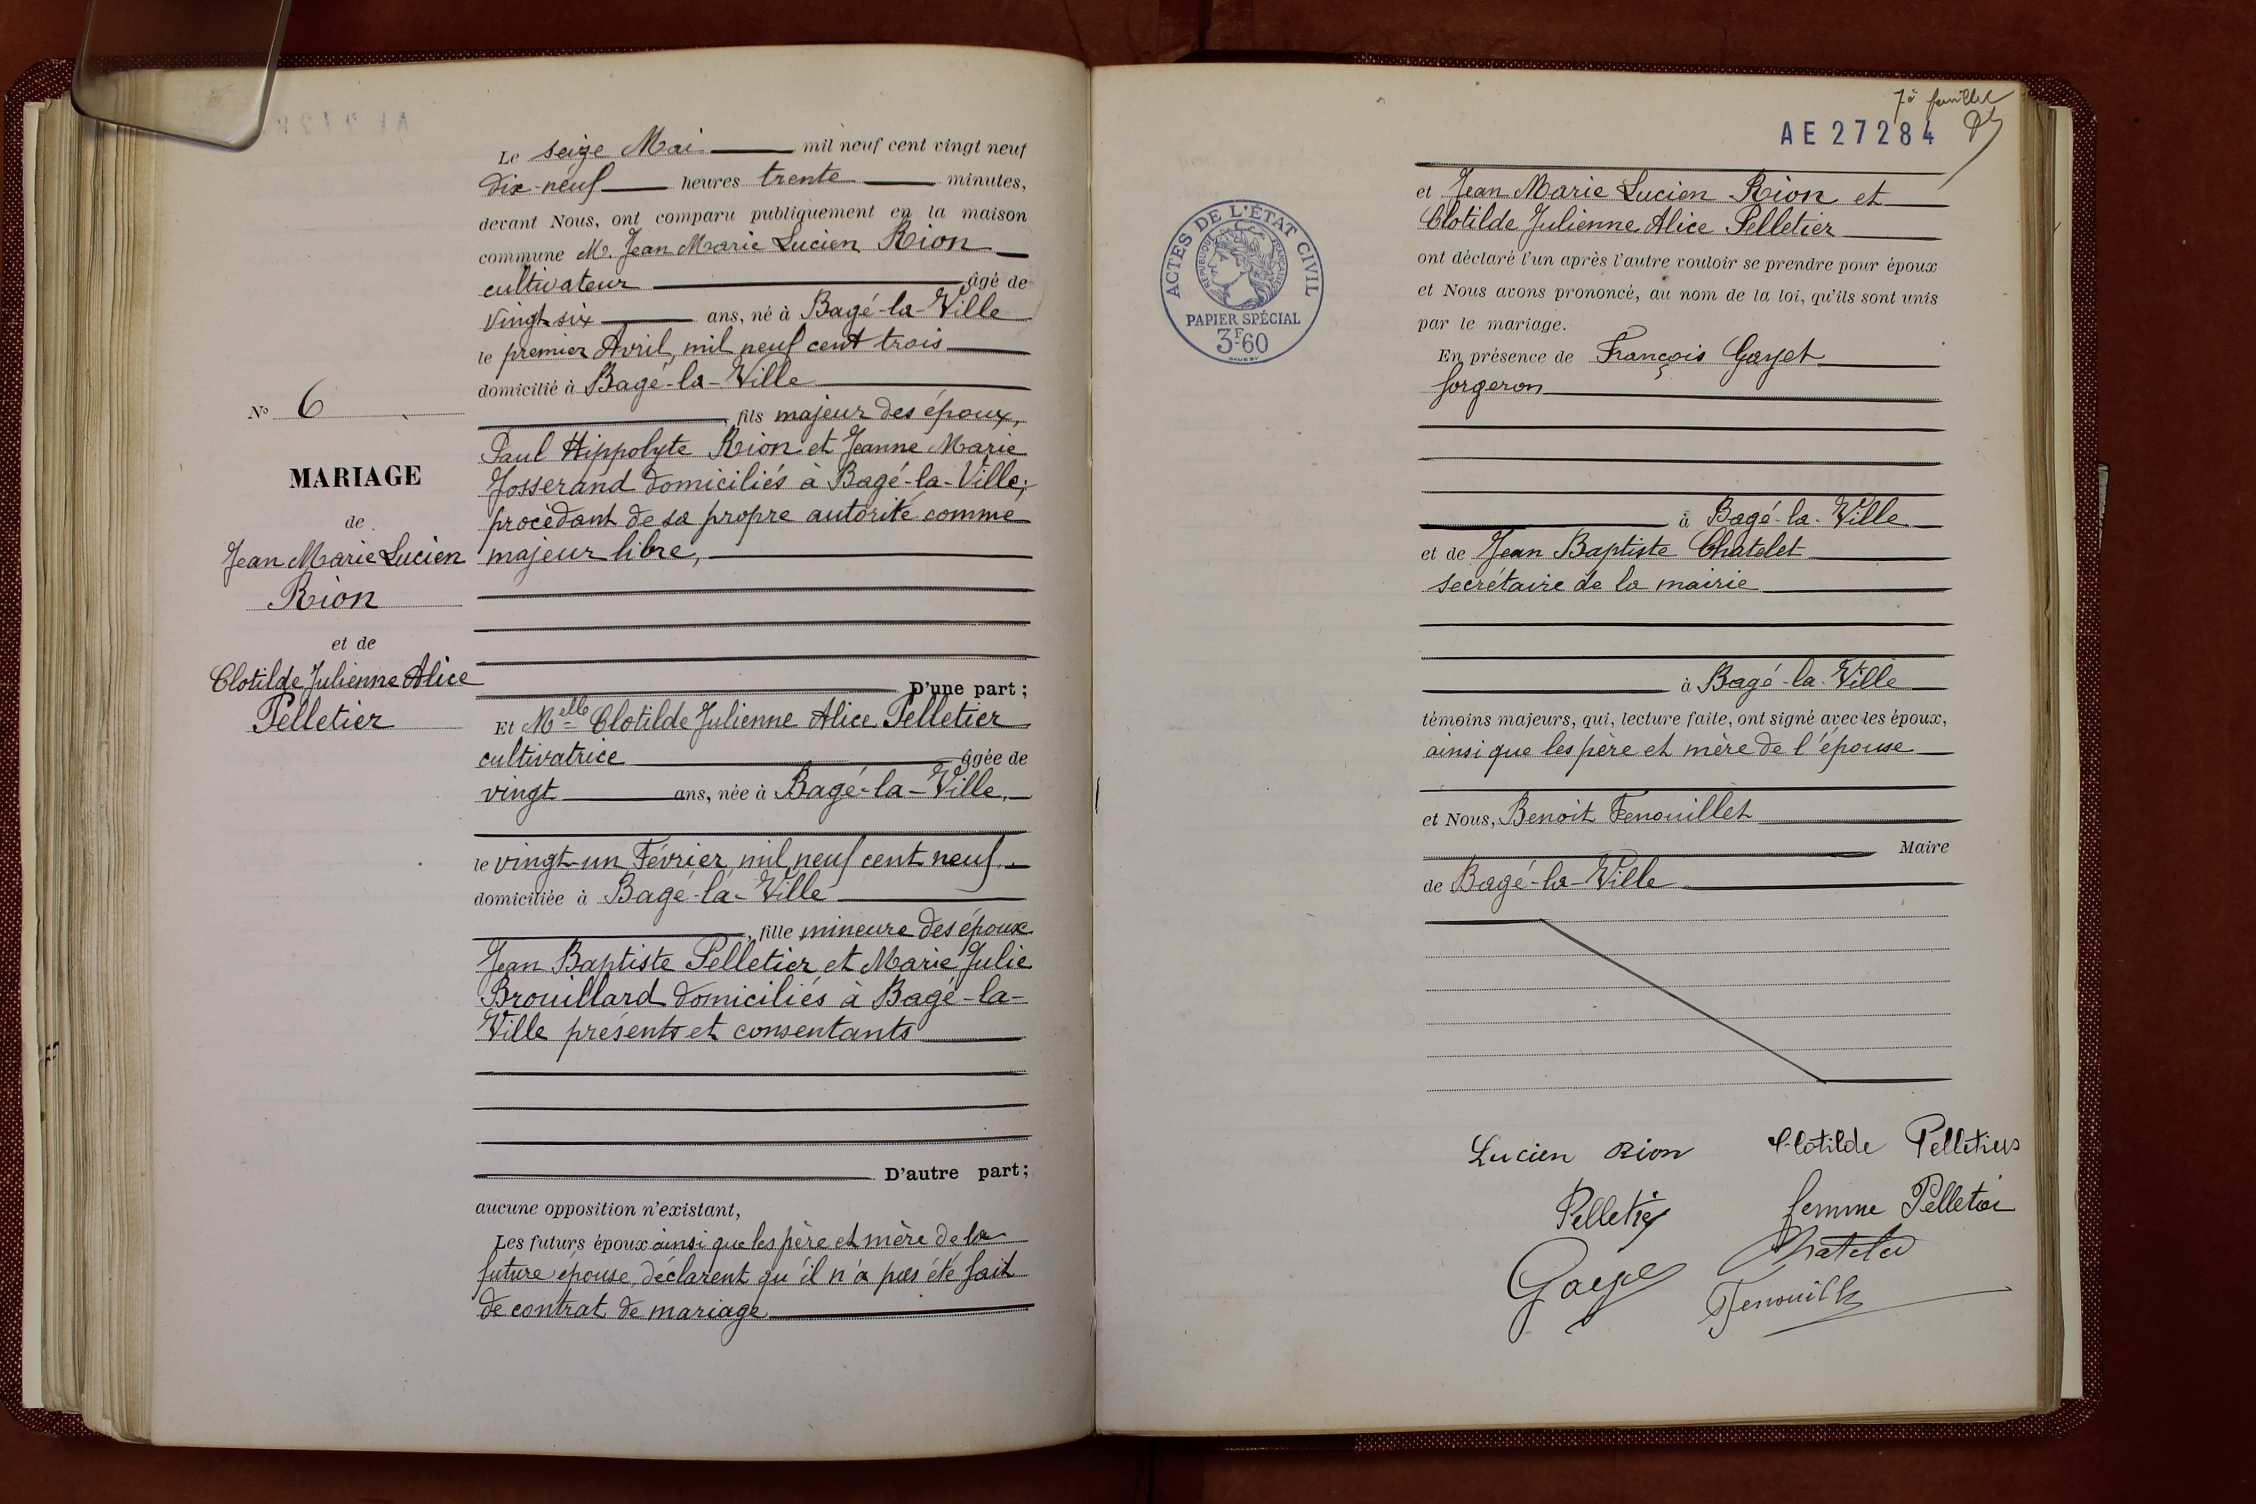 Le seize Mai mil neuf cent vingt neuf
dix-neuf heures trente minutes,
devant Nous, ont comparu publiquement en la maison
commune M. Jean Marie Lucien Rion
cultivateur âgé de
vingt six ans, né à Bagé-la-Ville
le premier Avril, mil neuf cent trois
domicilié à Bagé-la-Ville
fils majeur des époux,
Paul Hippolyte Rion et Jeanne Marie
Josserand domiciliés à Bagé-la-Ville;
procédant de sa propre autorité comme
majeur libre,
D'une part;
Et Melle Clotilde Julienne Alice Pelletier
cultivatrice âgée de
vingt ans, née à Bagé-la-Ville,
le vingt-un Février mil neuf cent neuf
domiciliée à Bagé-la-Ville
, fille mineure des époux
Jean Baptiste Pelletier et Marie Julie
Brouillard domiciliés à Bagé-la-
Ville présents et consentants
D'autre part;
aucune opposition n'existant,
Les futurs époux ainsi que les père et mère de la
future épouse, déclarent qu'il n'a pas été fait
de contrat de mariage
No 6
MARIAGE
de
Jean Marie Lucien
Rion
et de
Clotilde Julienne Alice
Pelletier
7è feuillet
AE 27284
ACTES DE L'ÉTAT CIVIL
RÉPUBLIQUE FRANÇAISE
PAPIER SPÉCIAL
3F60
et Jean Marie Lucien Rion et
Clotilde Julienne Alice Pelletier
ont déclaré l'un après l'autre vouloir se prendre pour époux
et Nous avons prononcé, au nom de la loi, qu'ils sont unis
par le mariage.
En présence de François Gayet
forgeron
à Bagé-la-Ville
et de Jean Baptiste Chatelet
secrétaire de la mairie
à Bagé-la-Ville
témoins majeurs, qui, lecture faite, ont signé avec les époux,
ainsi que les père et mère de l'épouse
et Nous, Benoit Fenouillet
Maire
de Bagé-la-Ville
Lucien Rion Clotilde Pelletier
Pelletier femme Pelletier
Gayet Chatelet
Fenouillet